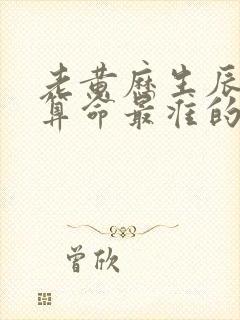 老黄历生辰
算命最准的
曾欣